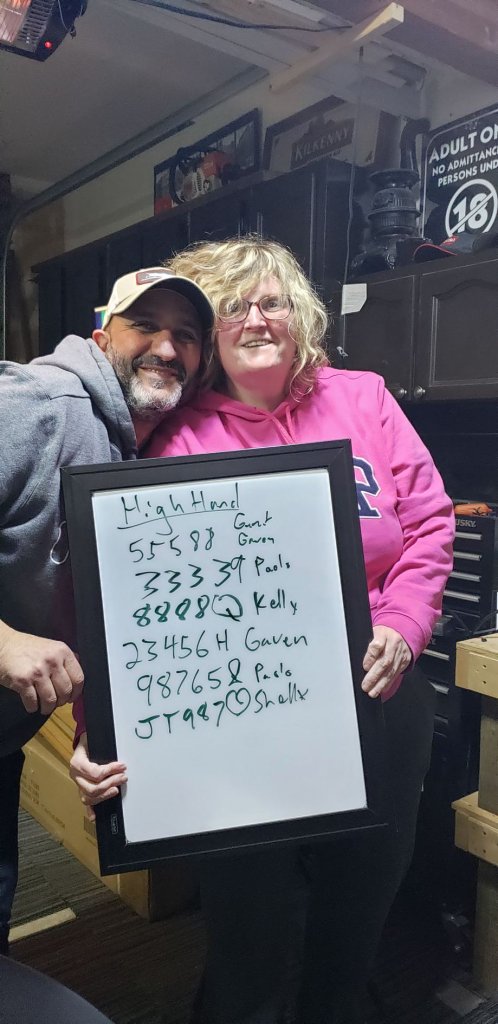 KILKENNY
ADULT ON
NO ADMITTANC
PERSONS UND
18
High Hand
55588 Gaven
33339 Paolo
8888Q Kelly
23456H Gaven
98765 Paolo
JT987♡ Shelly
HUSKY